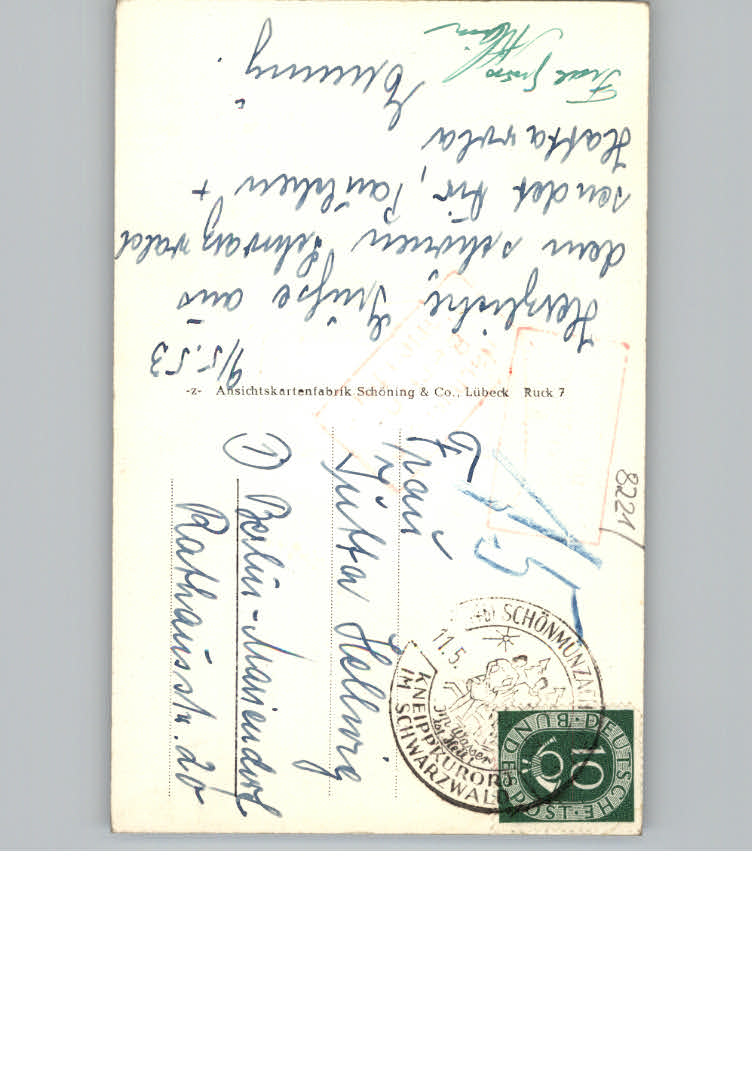 9/5.53
Herzliche Grüße aus
dem schönen Schwarzwald
sendet Dir, Paulchen +
Hattawola
Emmy.
Frdl. Grüße
-z- Ansichtskartenfabrik Schöning & Co., Lübeck Ruck 7
Frau
Jutta Hellwig
① Berlin-Mariendorf
Rathausstr. 20
15
8221
SCHÖNMÜNZACH
11.5.
Im Wasser
ist Heil!
KNEIPPKURORT
IM SCHWARZWALD
DEUTSCHE·BUNDESPOST
10